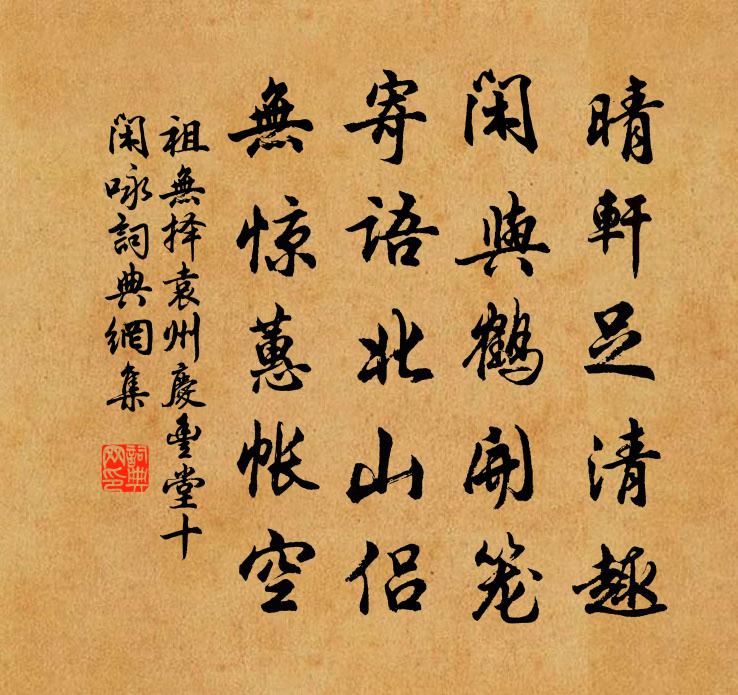 晴軒足清趣
閑與鶴開笼
寄語北山侶
無惊蕙帐空
祖無择袁州慶豊堂十
閑咏詞典網集
詞典网印